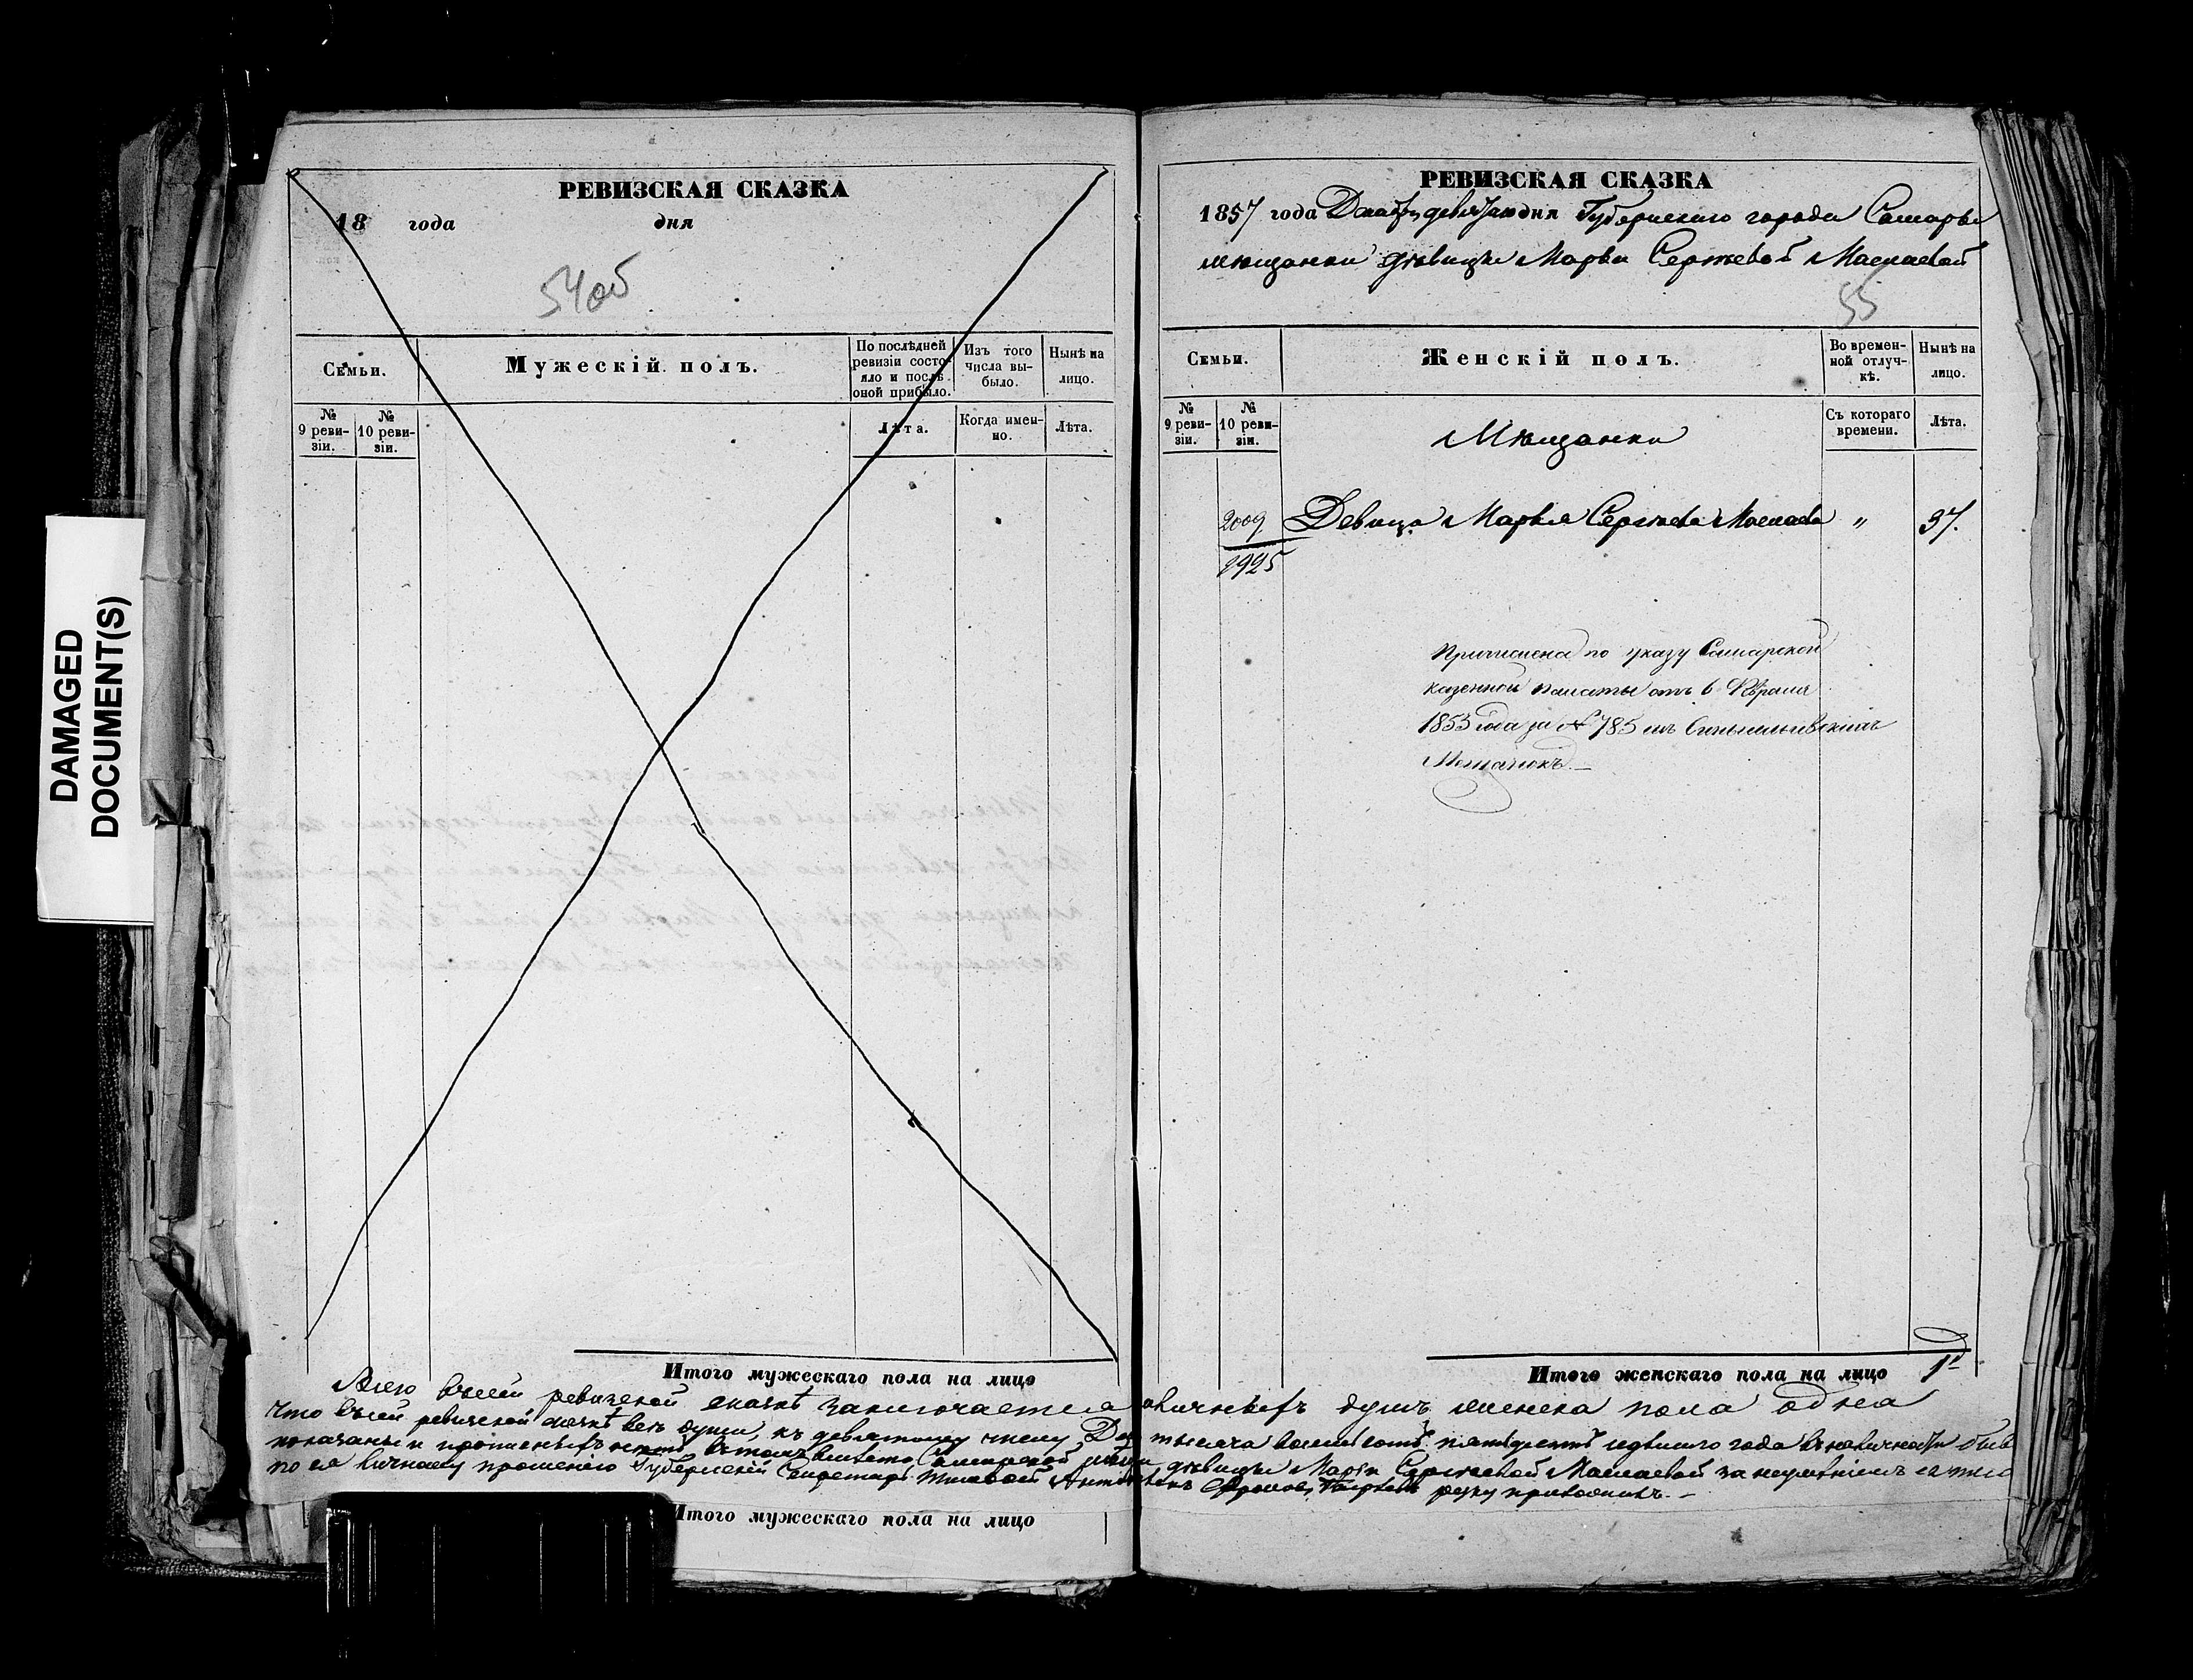 DAMAGED
DOCUMENT(S)
РЕВИЗСКАЯ СКАЗКА
18 года дня
54об
Семьи.
Мужескій полъ.
По послѣдней
ревизіи состо-
яло и послѣ
оной прибыло.
Изъ того
числа вы-
было.
Нынѣ на
лицо.
№
9 реви-
зіи.
№
10 реви-
зіи.
Лѣта.
Когда имен-
но.
Лѣта.
Итого мужескаго пола на лицо
РЕВИЗСКАЯ СКАЗКА
1857 года Декабря девятаго дня Губернскаго города Самары
мѣщанки дѣвицы Марьи Сергѣевой Маслаевой
55
Семьи.
Женскій полъ.
Во времен-
ной отлуч-
кѣ.
Нынѣ на
лицо.
№
9 реви-
зіи.
№
10 реви-
зіи.
Съ котораго
времени.
Лѣта.
Мѣщанки
2009
1925
Девица Марья Сергѣева Маслаева " 37.
Причислена по указу Самарской
казенной палаты отъ 6 Февраля
1853 года за № 785 изъ
Мещанокъ. —
Итого женскаго пола на лицо 1
Всего въ сей ревизской сказкѣ заключается наличныхъ душъ женска пола одна
что въ сей ревизской сказкѣ всѣ души, къ девятому числу тысяча восемь сотъ пятьдесятъ седьмого года въ наличности
показаны и прописныхъ нетъ въ томъ вместо Самарской дѣвицы Марьи Сергѣевой Маслаевой за неумѣніемъ ея
по ея личному прошенію Губернскій Секретарь руку приложилъ. —
Итого мужескаго пола на лицо